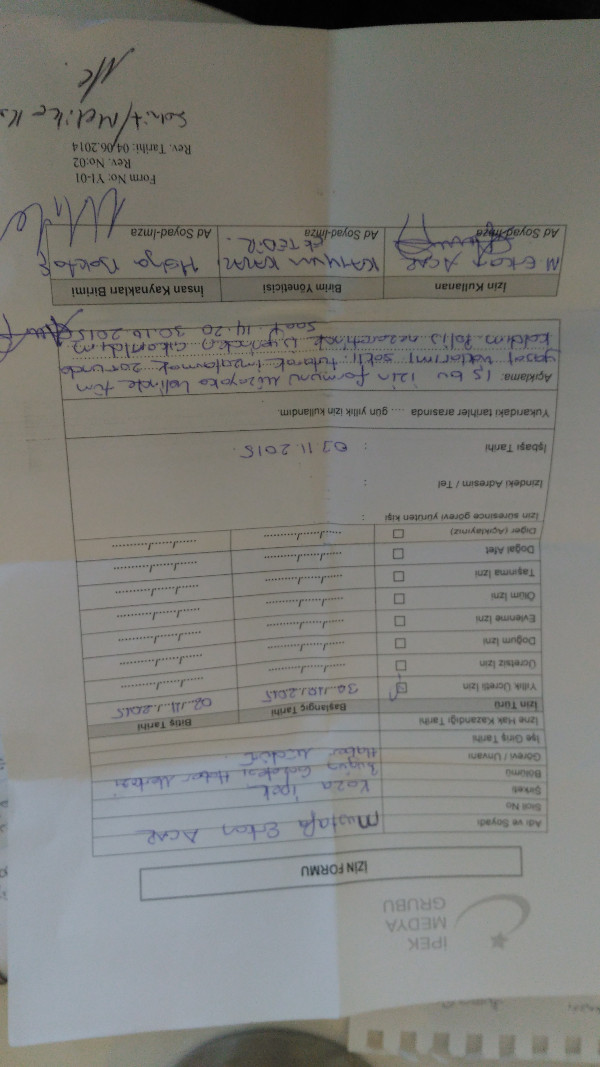 İPEK
MEDYA
GRUBU
İZİN FORMU
Adı ve Soyadı Mustafa Erkan ACAR
Sicil No
Şirketi Koza İpek
Bölümü Bugün Gazetesi Haber Merkezi
Görevi / Unvanı Haber Müdürü
İşe Giriş Tarihi
İzne Hak Kazandığı Tarihi
İzin Türü Başlangıç Tarihi Bitiş Tarihi
Yıllık Ücretli İzin 30./10./.2015 02./11./.2015
Ücretsiz İzin ....../....../............ ....../....../............
Doğum İzni ....../....../............ ....../....../............
Evlenme İzni ....../....../............ ....../....../............
Ölüm İzni ....../....../............ ....../....../............
Taşınma İzni ....../....../............ ....../....../............
Doğal Afet ....../....../............ ....../....../............
Diğer (Açıklayınız) ....../....../............ ....../....../............
İzin süresince görevi yürüten kişi :
İzindeki Adresim / Tel :
İşbaşı Tarihi : 03.11.2015
Yukarıdaki tarihler arasında .... gün yıllık izin kullandım.
Açıklama: İş bu izin formunu tüm
yasal haklarımı saklı tutarak imzalamak zorunda
kaldım. Polis nezaretinde işyerinden çıkarıldım
Saat 14.20 30.10.2015
İzin Kullanan Birim Yöneticisi İnsan Kaynakları Birimi
M. Erkan ACAR
Ad Soyad-İmza Ad Soyad-İmza Ad Soyad-İmza
Form No: Y1-01
Rev. No:02
Rev. Tarihi: 04.06.2014